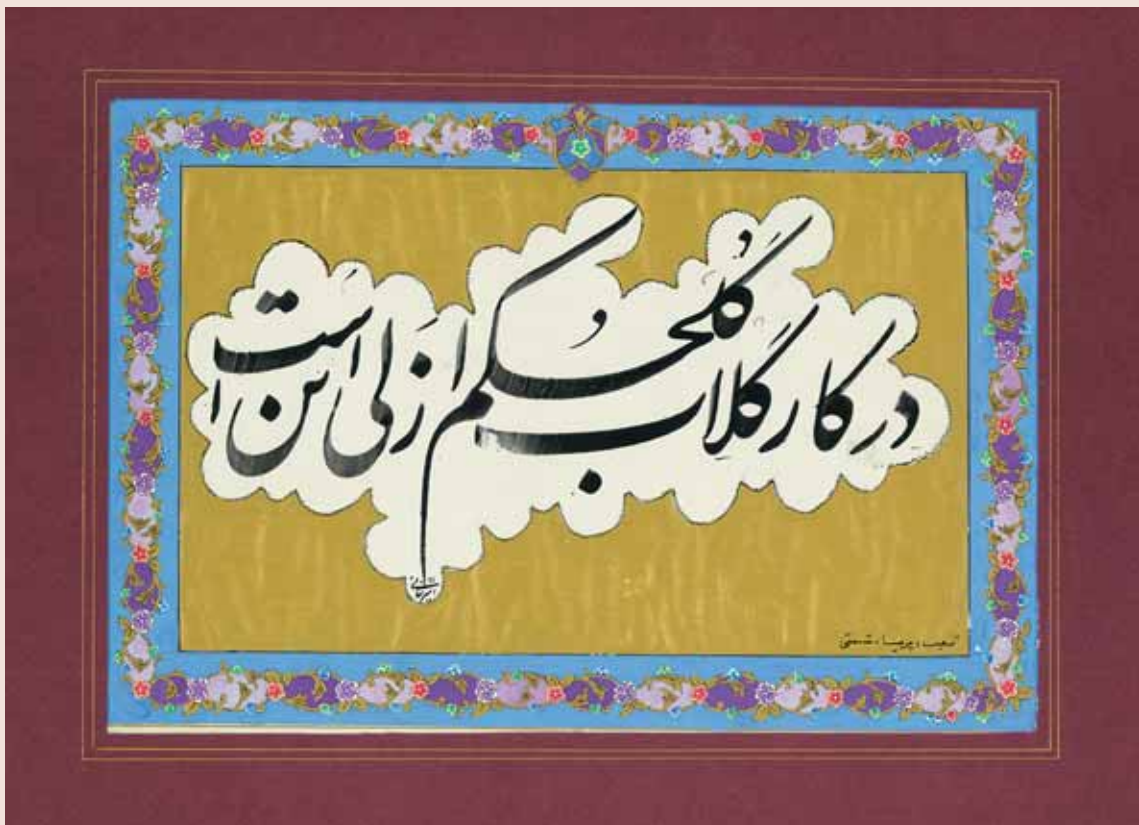 در کار گلاب گُل حُکم ازَلی این است